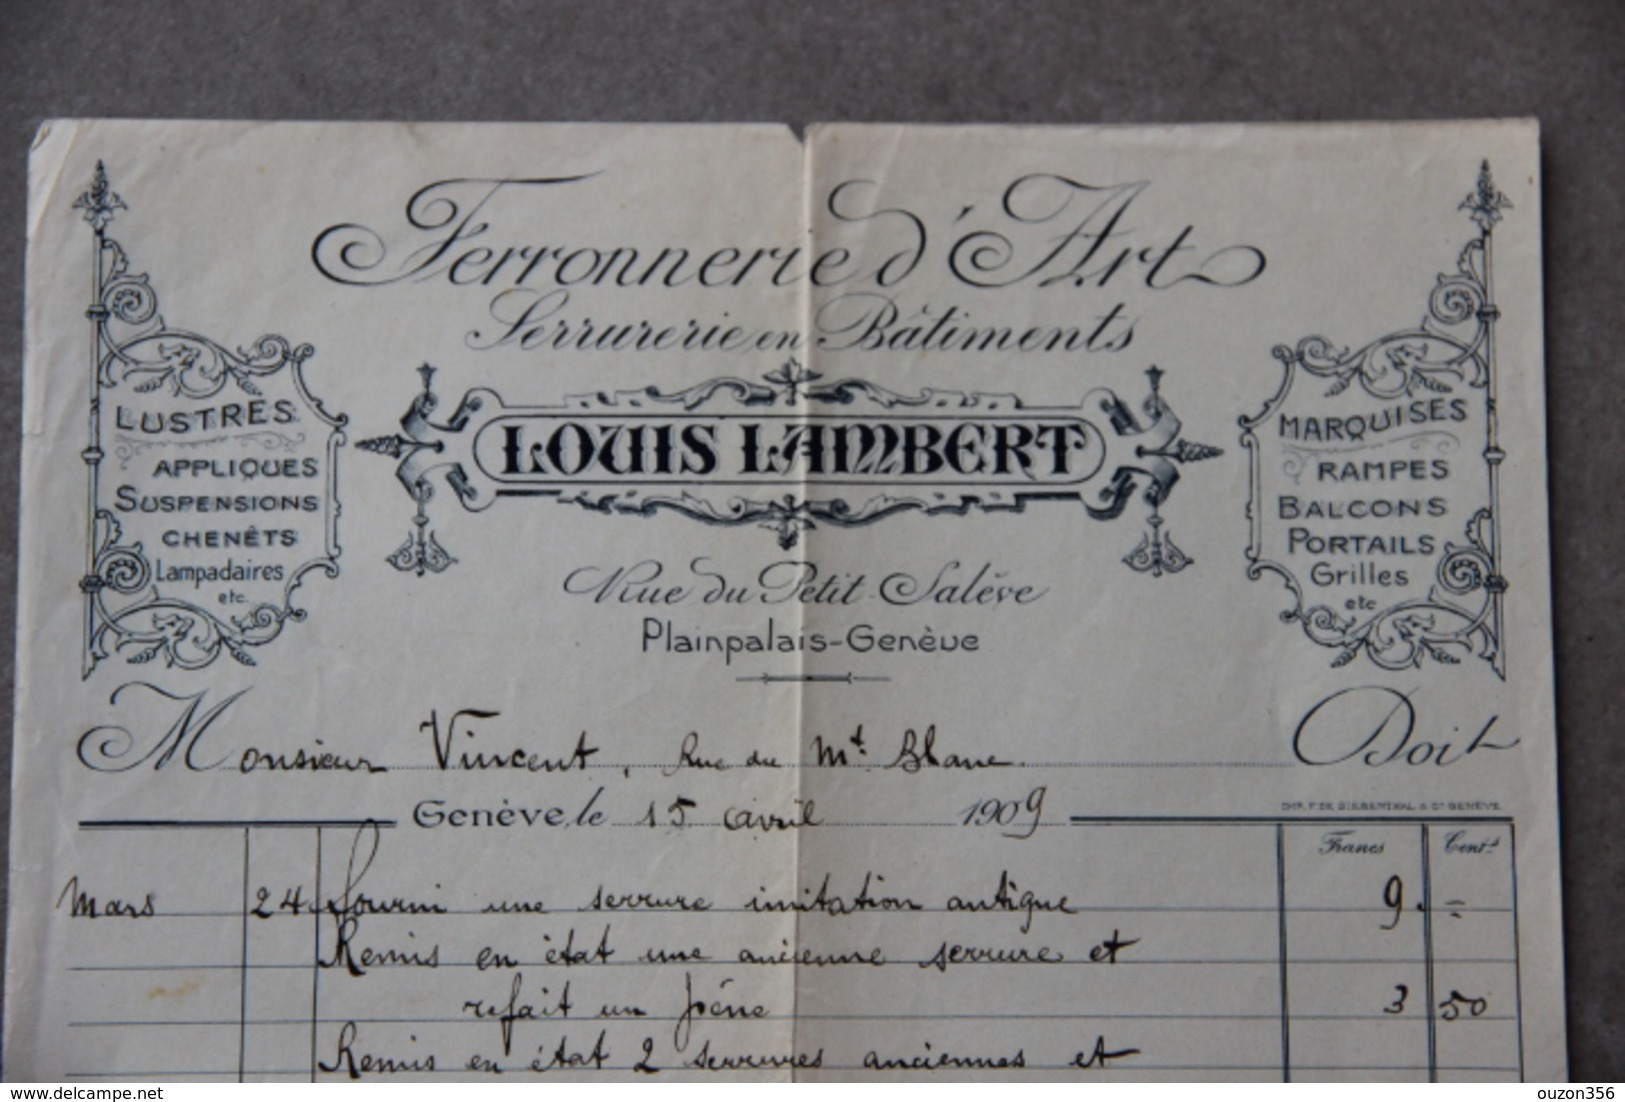 Ferronnerie d'Art
Serrurerie en Bâtiments
LOUIS LAMBERT
Rue du Petit-Salève
Plainpalais-Genève
LUSTRES
APPLIQUES
SUSPENSIONS
CHENÊTS
Lampadaires
etc.
MARQUISES
RAMPES
BALCONS
PORTAILS
Grilles
etc
Monsieur Vincent, Rue du Mt. Blanc. Doit
Genève, le 15 avril 1909
IMP. F. DE SIEBENTHAL & Cie GENÈVE
Francs Cent.s
Mars 24. Fourni une serrure imitation antique 9. =
Remis en état une ancienne serrure et
refait un pêne 3 50
Remis en état 2 serrures anciennes et
delcampe.net
ouzon356